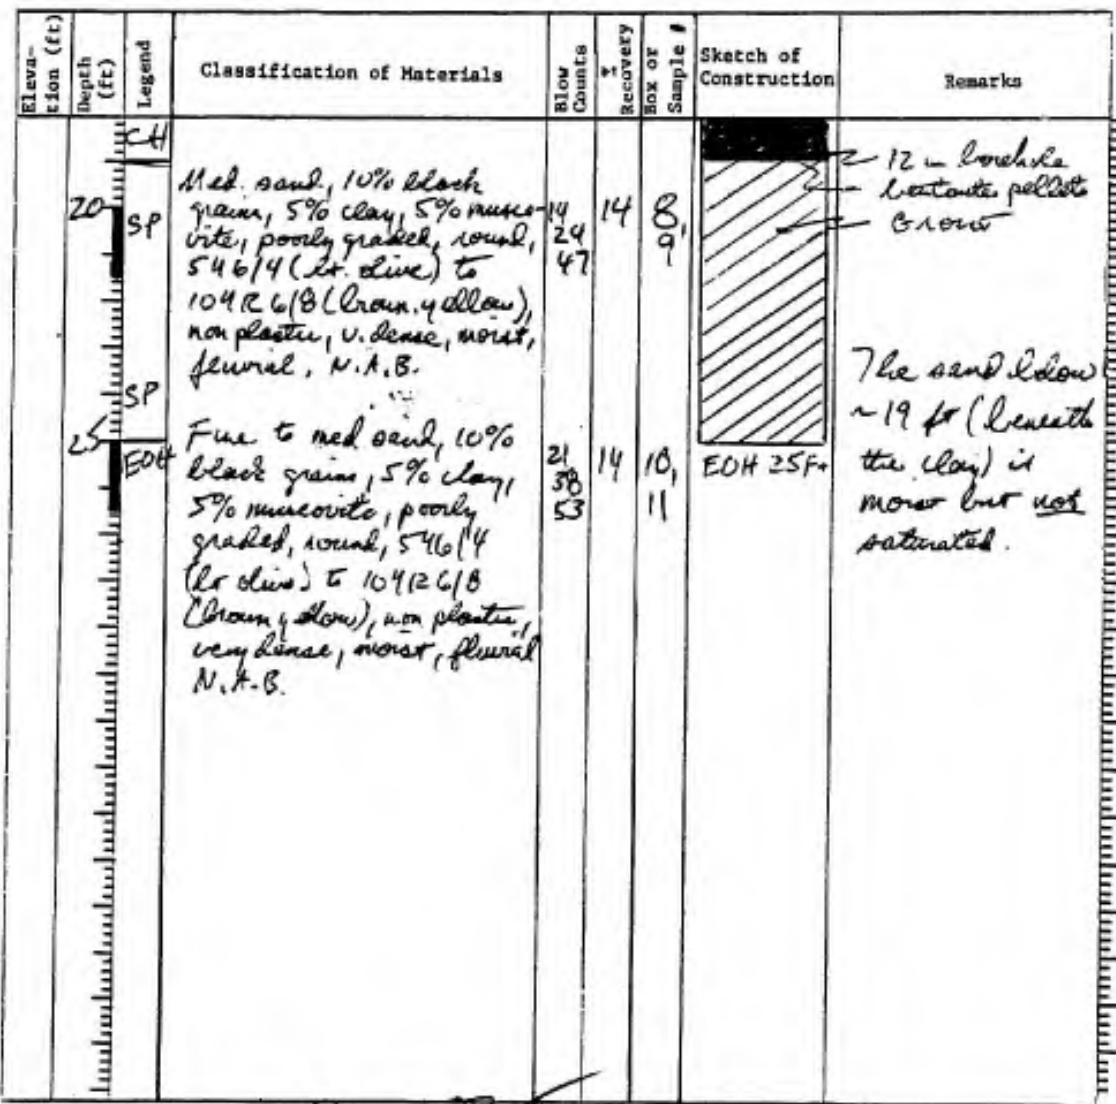 Eleva-
tion (ft)
Depth
(ft)
Legend
Classification of Materials
Blow
Counts
Recovery
Box or
Sample #
Sketch of
Construction
Remarks
CH
20
SP
Med. sand, 10% black
grains, 5% clay, 5% musco-
vite, poorly graded, round,
5Y6/4 (lt. olive) to
10YR 6/8 (brown. yellow),
non plastic, v. dense, moist,
fluvial, N.A.B.
14
24
47
14
8,
9
12 in borehole
bentonite pellets
Grout
SP
25
EOH
Fine to med sand, 10%
black grains, 5% clay,
5% muscovite, poorly
graded, round, 5Y6/4
(lt olive) to 10YR6/8
(brown yellow), non plastic,
very dense, moist, fluvial
N.A.B.
21
38
53
14
10,
11
EOH 25Ft
The sand below
~ 19 ft (beneath
the clay) is
moist but not
saturated.